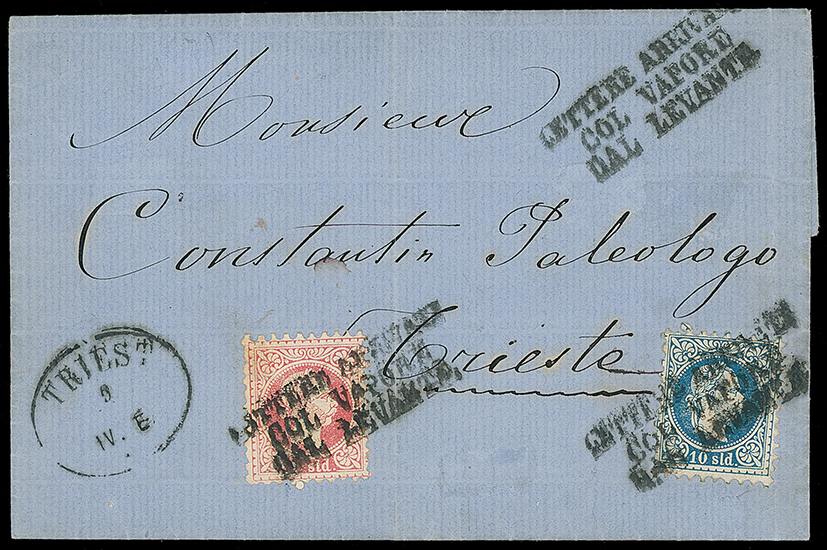 LETTERE ARRIVATE
COL VAPORE
DAL LEVANTE
Monsieur
Constantin Paleologo
Trieste
TRIEST
9
IV. E
LETTERE ARRIVATE
COL VAPORE
DAL LEVANTE
sld.
LETTERE
COL VAPORE
DAL LEVANTE
10 sld.